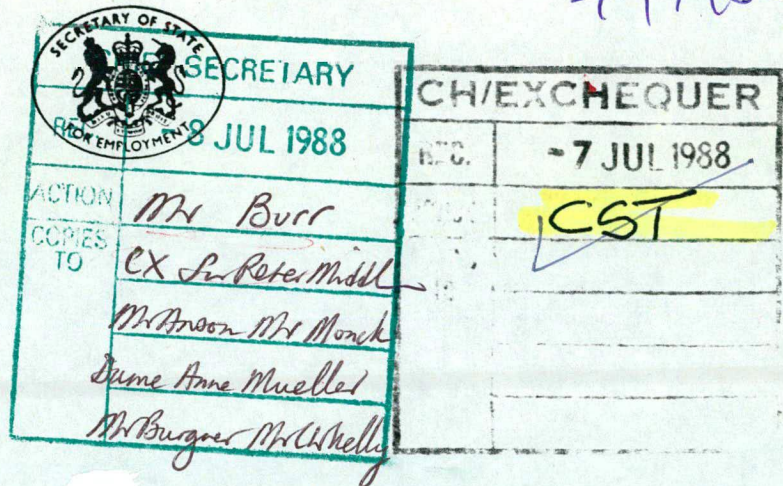 SECRETARY OF STATE
FOR EMPLOYMENT
SECRETARY
REC. 8 JUL 1988
ACTION Mr Burr
COPIES TO CX Sir Peter Middl
Mr Anson Mr Monck
Dame Anne Mueller
Mr Burgner Mr C Kelly
CH/EXCHEQUER
REC. -7 JUL 1988
CST